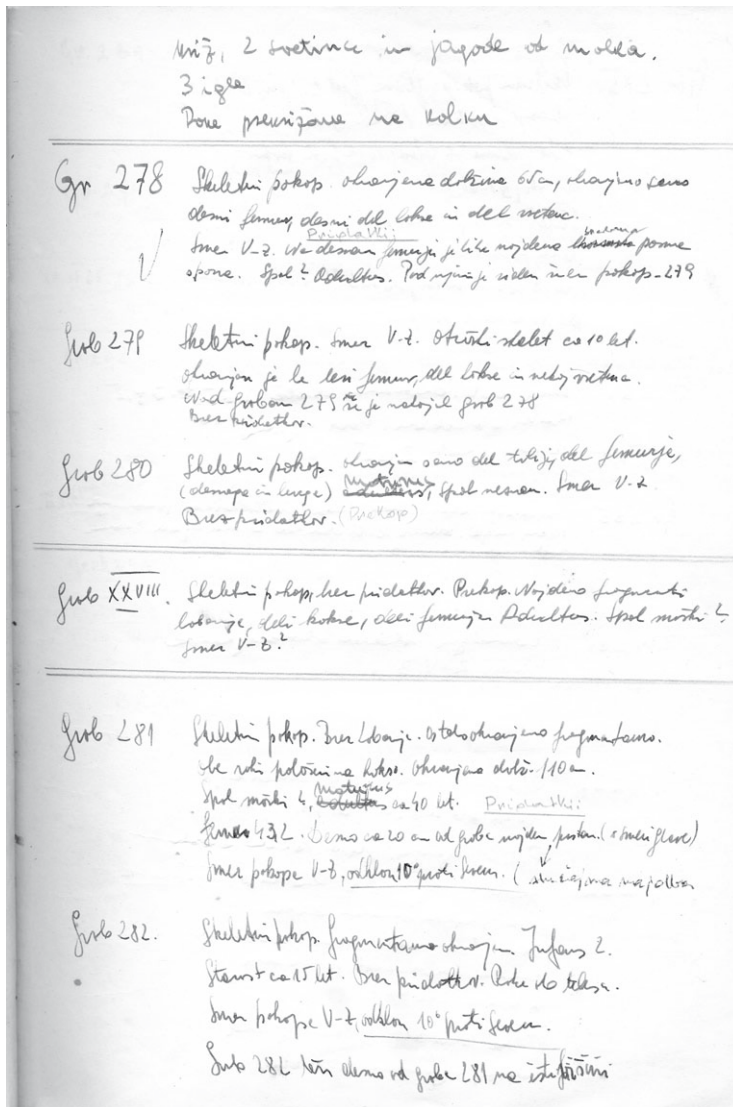 križ, 2 svetince in jagode od molka.
3 igle
Roke prekrižane na kolku
Gr 278 Skeletni pokop. ohranjena dolžina 65 cm, ohranjeno samo
desni femur, desni del kokse in del vretenc.
Pridatki:
Smer V-Z. Na desnem femurju je bila najdena pasna
spona. Spol? Adultus. Pod njim je viden še en pokop - 279
Grob 279 Skeletni pokop. Smer V-Z. Otroški skelet ca 10 let.
ohranjen je le levi femur, del kokse in nekaj vretenc.
Nad grobom 279 se je nahajal grob 278
Brez pridatkov.
Grob 280 Skeletni pokop. ohranjen samo del tibije, del femurja,
(desnega in levega) maturus, Spol neznan. Smer V-Z
Brez pridatkov. (Prekop)
Grob XXVIII. Skeletni pokop, brez pridatkov. Prekop. Najdeno fragmenti
lobanje, deli kokse, deli femurja. Adultus. Spol moški?
Smer V-Z?
Grob 281 Skeletni pokop. Brez lobanje. ostalo ohranjeno fragmentarno.
Obe roki položeni na kokso. Ohranjena dolž. 110 cm.
Spol moški, maturus ca 40 let. Pridatki:
Femur 43,2. Desno ca 20 cm od groba najden prstan. (v smeri glave)
Smer pokopa V-Z, odklon 10° proti severu. (slučajna najdba
Grob 282. Skeletni pokop fragmentarno ohranjen. Infans 2.
Starost ca 15 let. Brez pridatkov. Roke ob telesu.
Smer pokopa V-Z, odklon 10° proti severu.
Grob 282 leži desno od groba 281 na isti višini